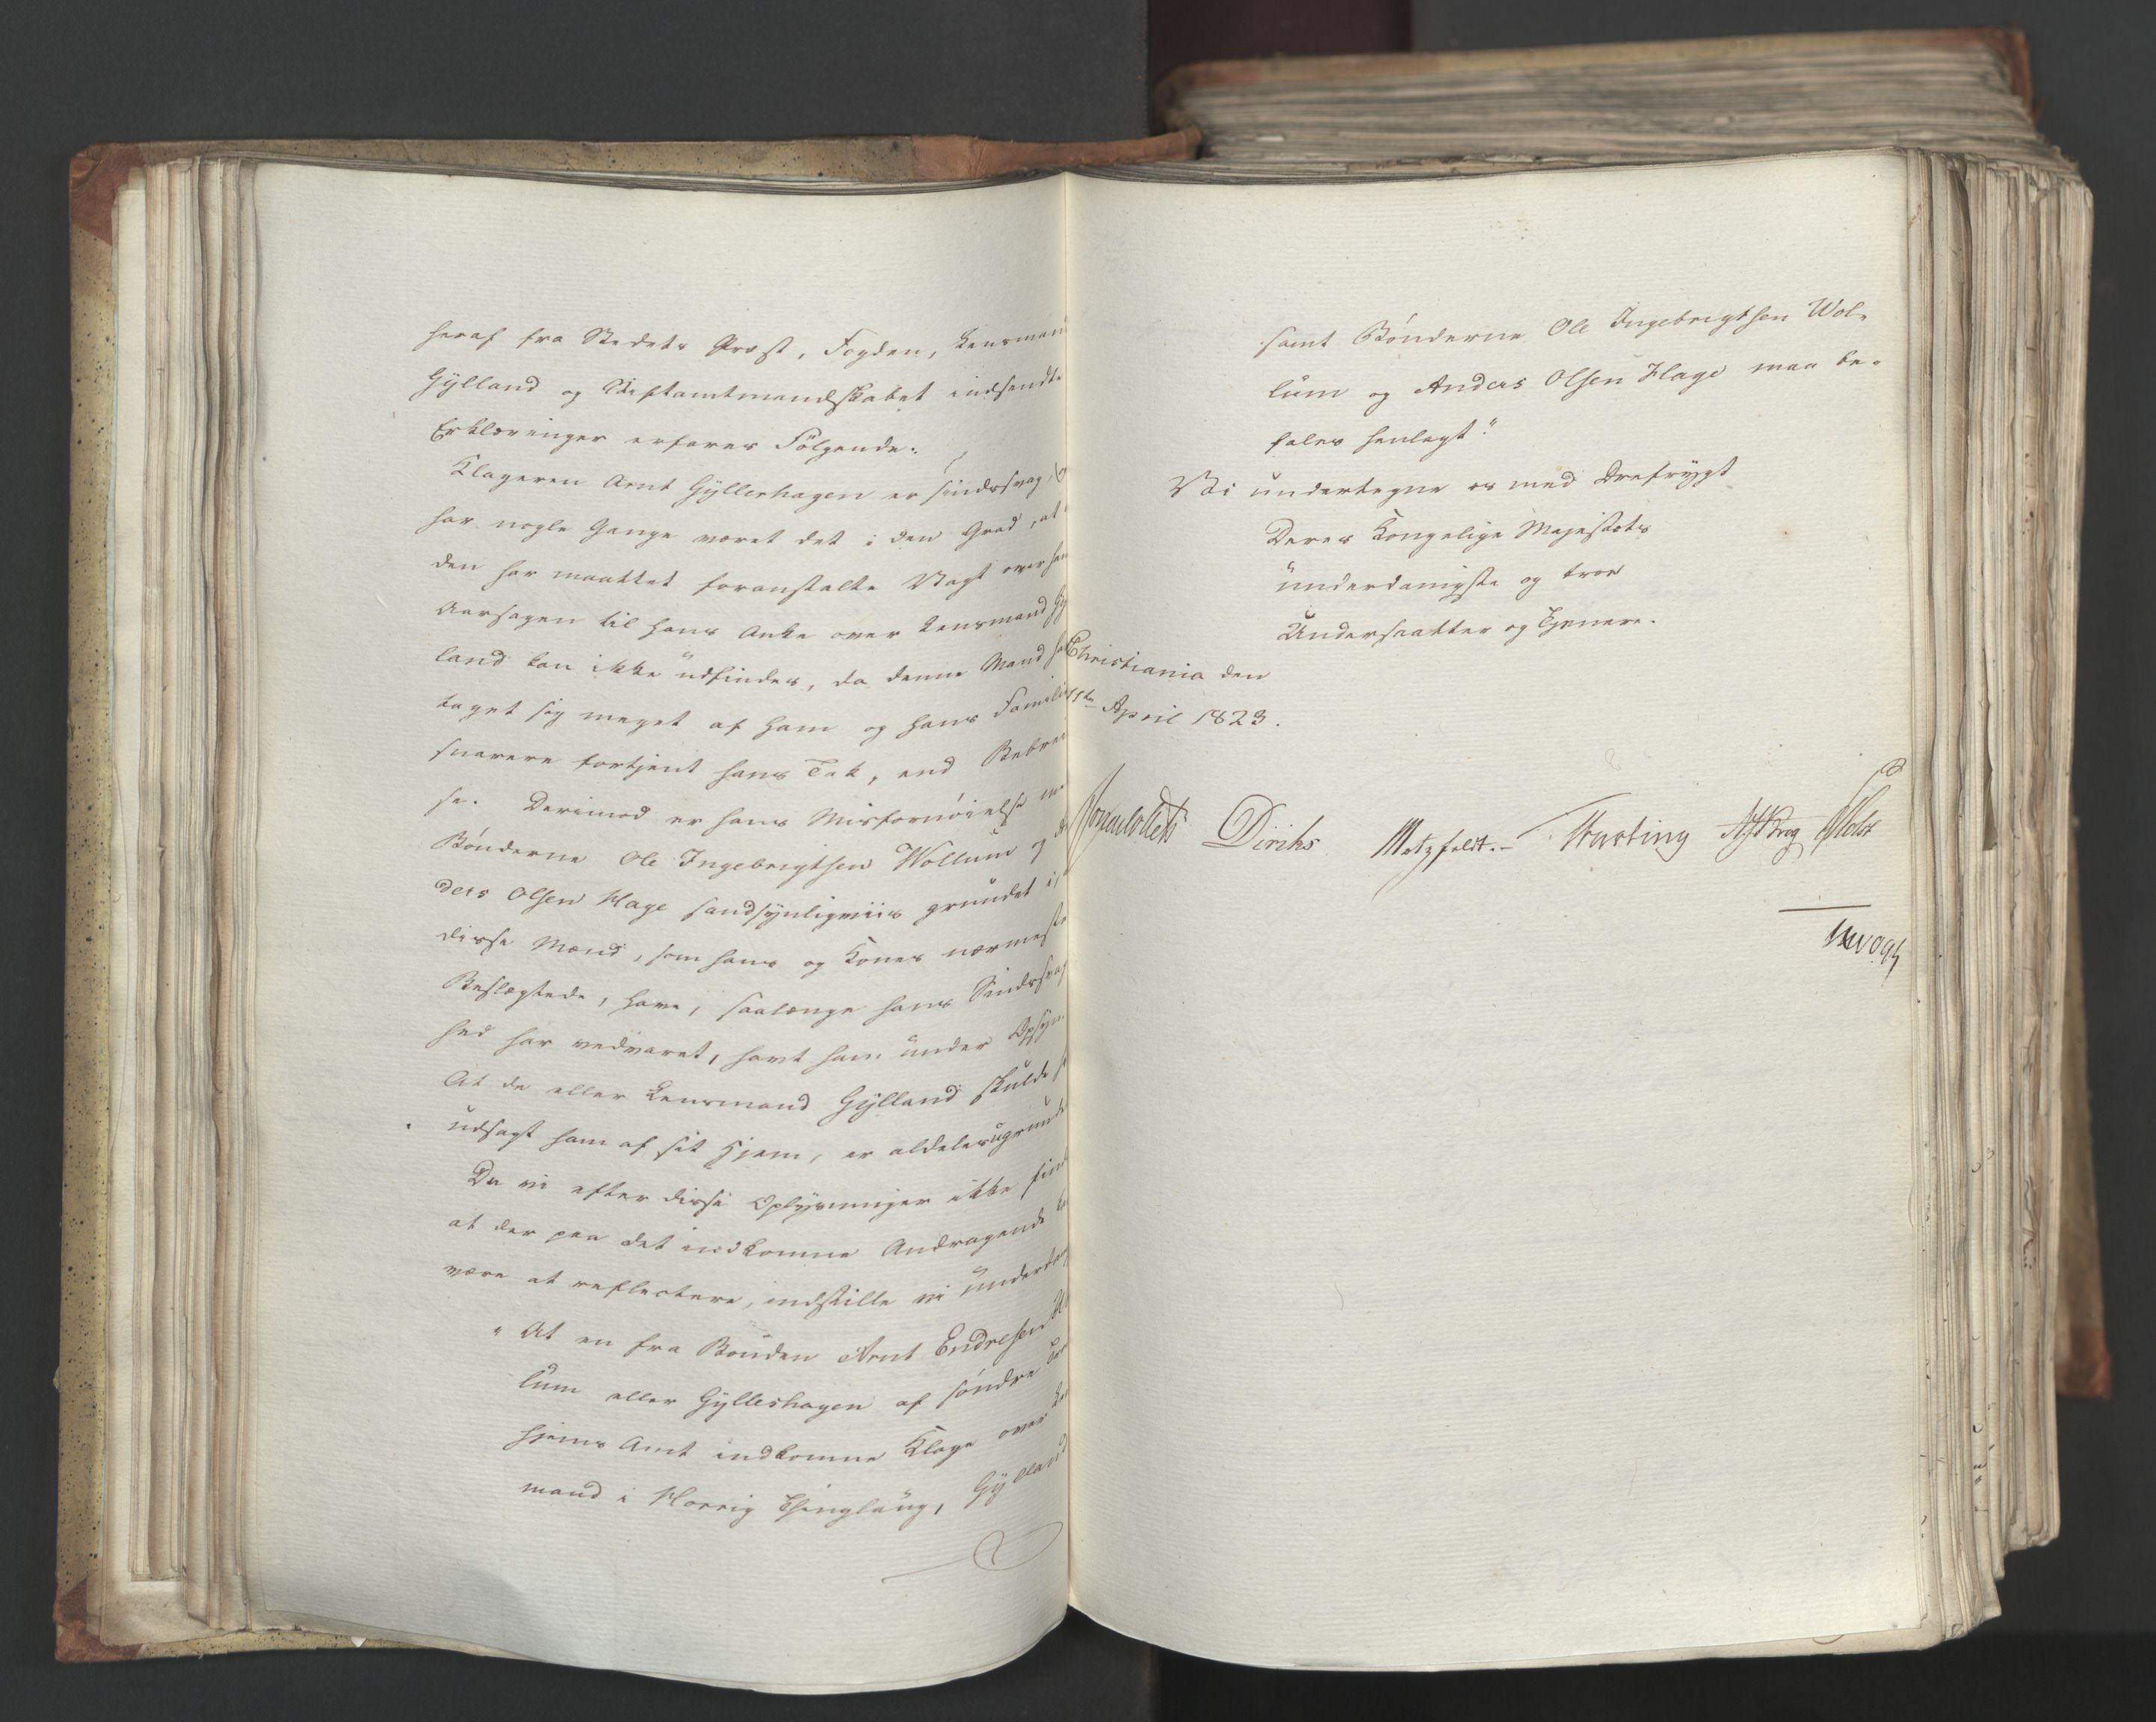 heraf fra Stedets Præst, Fogden, Lensmand
Gylland og Stiftamtmandskabet indsendte
Erklæringer erfares Følgende:
Klageren Arnt Gyllerhagen er sindssvag,
har nogle Gange været det i den Grad, at
den har maattet foranstalte Vagt over
Aarsagen til hans Anke over Lensmand Gy
land kan ikke udfindes, da denne Mand
taget sig meget af ham og hans Famili
snarere fortjent hans Tak, end Bebrei
se. Derimod er hans Misfornøielse
Bønderne Ole Ingebrigtsen Wollum og
ders Olsen Hage sandsynligviis grundet i,
disse Mænd, som hans og Kones nærmeste
Beslægtede, have, saalænge hans Sindssvag
hed har vedvaret, havt ham under Opsyn.
At de eller Lensmand Gylland skulde
udjagt ham af sit Hjem, er aldeles ugrunde
Da vi efter disse Oplysninger ikke find
at der paa det indkomne Andragende
være at reflectere, indstille vi underda
"At en fra Bonden Arnt Endresen
lum eller Gylleshagen af søndre
hjems Amt indkomne Klage over
mand i Horrig Thinglaug, Gylland
samt Bønderne Ole Ingebrigtsen Wol-
lum og Anders Olsen Hage maa be-
fales henlagt."
Vi undertegne os med Ærefrygt
Deres Kongelige Majestæts
underdanigste og troe
Undersaatter og Tjenere.
Christiania den
April 1823.
Diriks Motzfeldt.